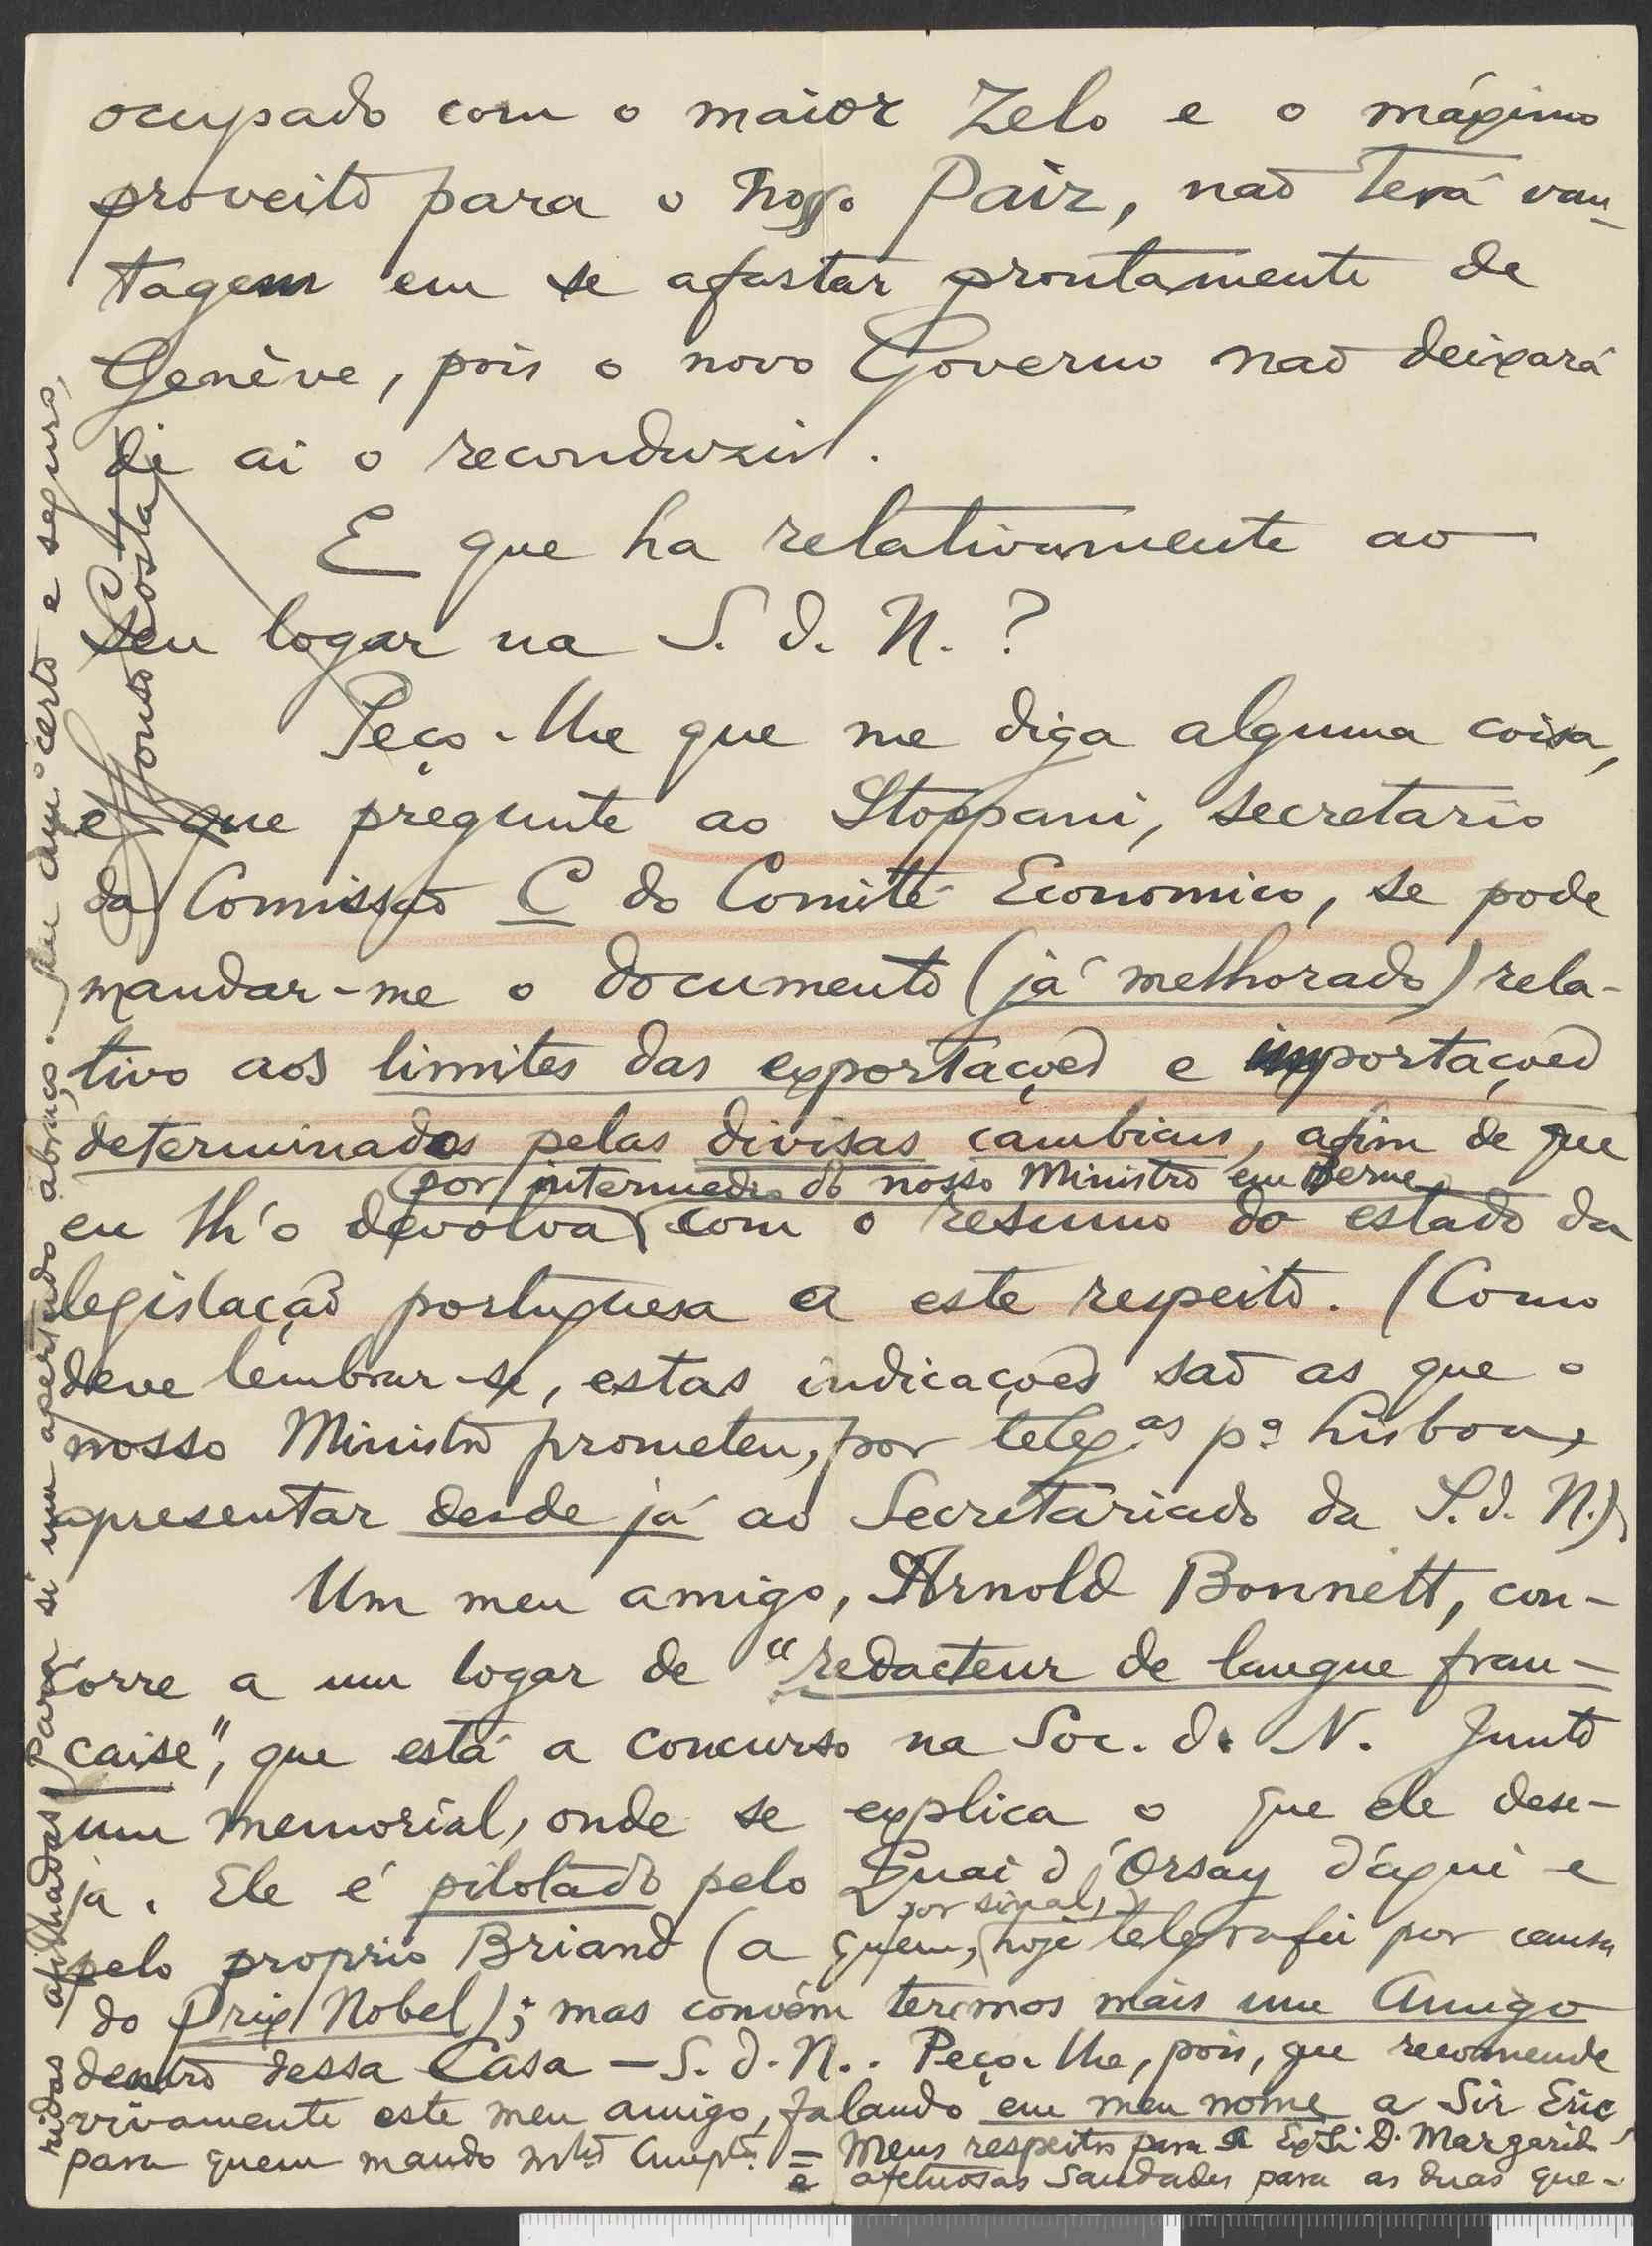 ocupado com o maior zelo e o máximo
proveito para o nosso Paiz, não terá van-
tagem em se afastar prontamente de
Genève, pois o novo Governo não deixará
de ai o reconduzir.
E que ha relativamente ao
seu logar na S. d. N. ?
Peço-lhe que me diga alguma coisa,
e que pregunte ao Stoppani, secretario
da Comissão C do Comité Economico, se pode
mandar-me o documento (já melhorado) rela-
tivo aos limites das exportações e importações
determinados pelas divisas cambiais, afim de que
por intermedio do nosso Ministro em Berne
eu lh'o devolva com o resumo do estado da
legislação portuguesa a este respeito. (Como
deve lembrar-se, estas indicações são as que o
nosso Ministro prometeu, por telegas pa Lisboa,
apresentar desde já ao Secretariado da S. d. N.).
Um meu amigo, Arnold Bonnett, con-
corre a um logar de "redacteur de langue fran-
caise", que está a concurso na Soc. d. N. Junto
um memorial, onde se explica o que ele dese-
ja. Ele é pilotado pelo Quai d'Orsay d'aqui e
por sinal,
pelo proprio Briand (a quem, hoje telegrafei por causa
do Prix Nobel); mas convém termos mais um Amigo
dentro dessa Casa — S. d. N.. Peço-lhe, pois, que recomende
vivamente este meu amigo, falando em meu nome a Sir Eric
para quem mando mtos cumptos. = Meus respeitos para a Exma Sra D. Margarida
e afetuosas saudades para as duas que-
ridas afilhadas. Para si um apertado abraço. Seu am.o certo e seguro,
Affonso Costa